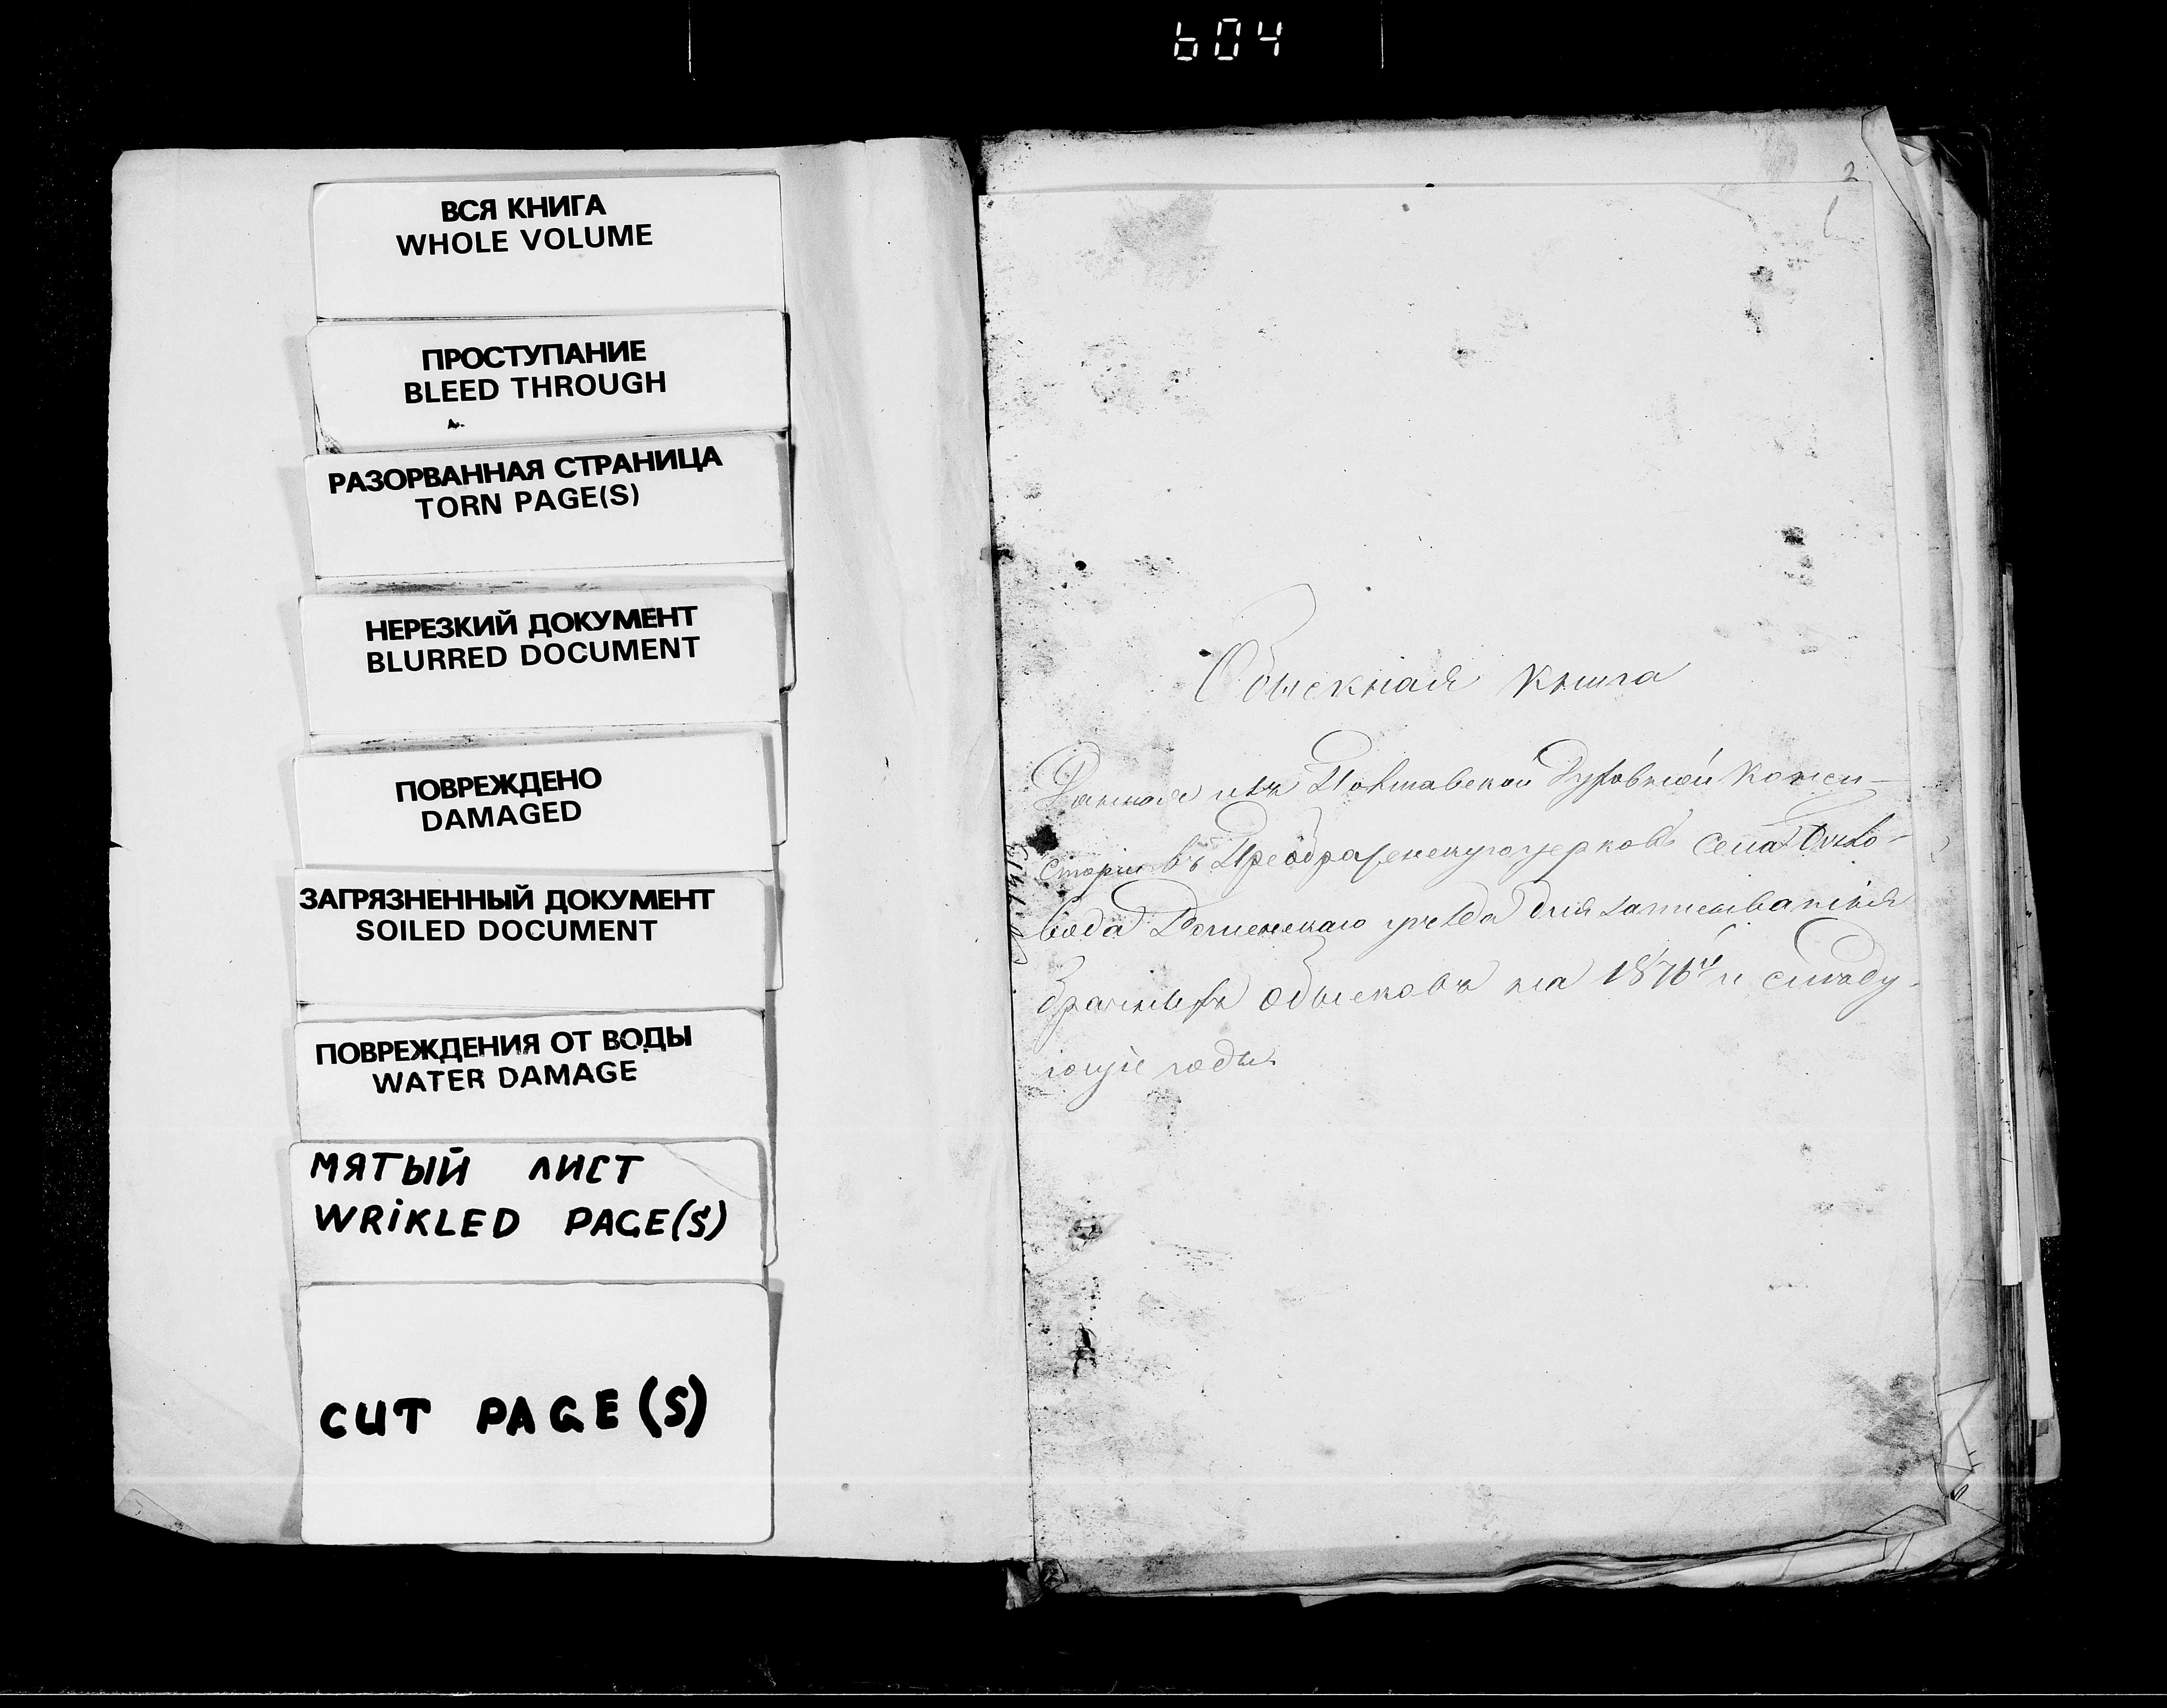 604
ВСЯ КНИГА
WHOLE VOLUME
ПРОСТУПАНИЕ
BLEED THROUGH
РАЗОРВАННАЯ СТРАНИЦА
TORN PAGE(S)
НЕРЕЗКИЙ ДОКУМЕНТ
BLURRED DOCUMENT
ПОВРЕЖДЕНО
DAMAGED
ЗАГРЯЗНЕННЫЙ ДОКУМЕНТ
SOILED DOCUMENT
ПОВРЕЖДЕНИЯ ОТ ВОДЫ
WATER DAMAGE
МЯТЫЙ ЛИСТ
WRiKLED PAGE(S)
CUT PAGE(S)
2
Обыскная книга
Данная изъ Полтавской Духовной Конси-
сторіи въ Преображенскую церковь села
вода Роменскаго уѣзда для записыванія
брачныхъ обысковъ на 1876й и слѣду-
ющіе годы.